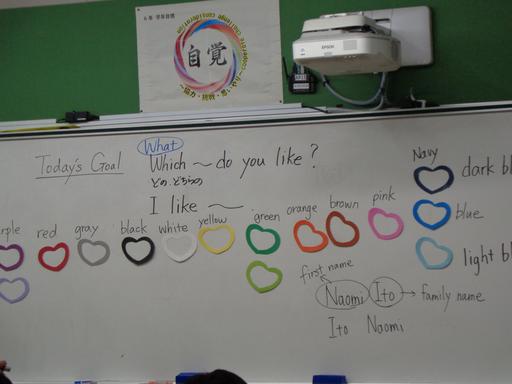 6年 学年目標
自覚
cooperate challenge consideration
～協力・挑戦・思いやり～
EPSON
What
Today's Goal Which ～ do you like?
どの、どちらの
I like ～
purple red gray black white yellow green orange brown pink
Navy dark bl
blue
light bl
first name
Naomi Ito → family name
Ito Naomi